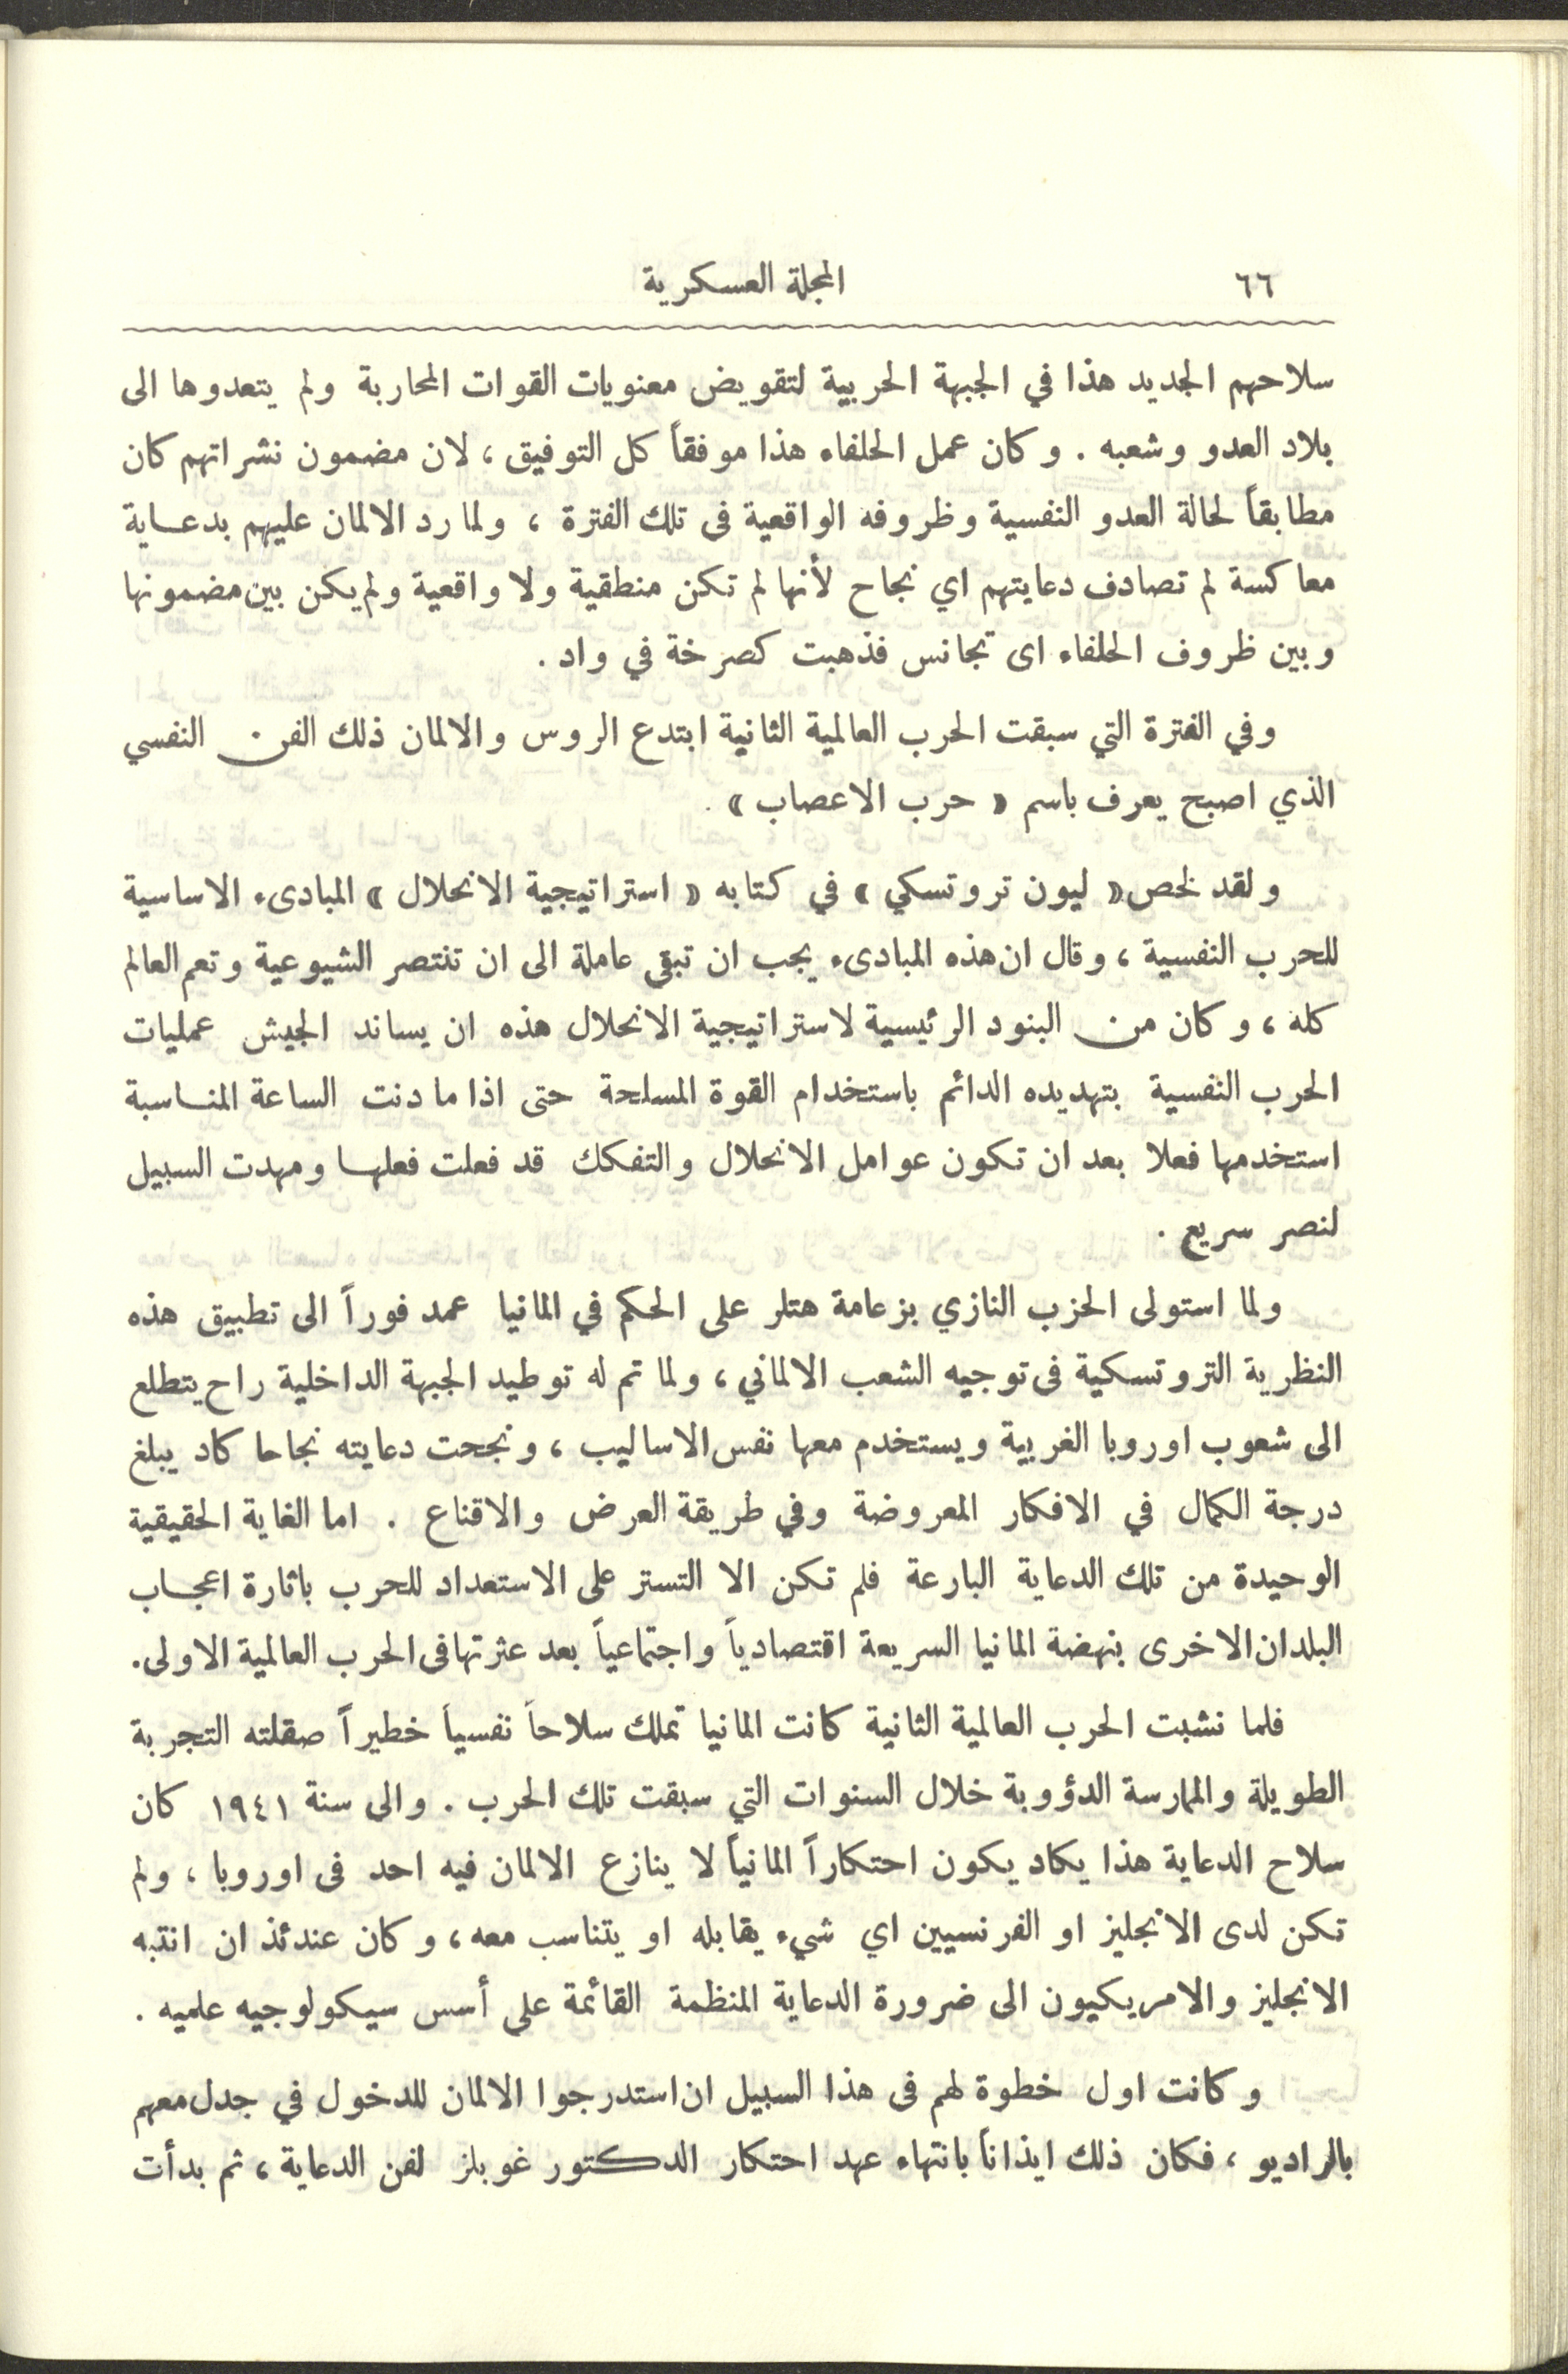 ٦٦
المجلة العسكرية
سلاحهم الجديد هذا في الجبهة الحربية لتقويض معنويات القوات المحاربة ولم يتعدوها الى
بلاد العدو وشعبه . وكان عمل الحلفاء هذا موفقاً كل التوفيق ، لان مضمون نشراتهم كان
مطابقاً لحالة العدو النفسية وظروفه الواقعية فى تلك الفترة ، ولما رد الالمان عليهم بدعـاية
معاكسة لم تصادف دعايتهم اي نجاح لأنها لم تكن منطقية ولا واقعية ولم يكن بين مضمونها
وبين ظروف الحلفاء اى تجانس فذهبت كصرخة في واد .
وفي الفترة التي سبقت الحرب العالمية الثانية ابتدع الروس والالمان ذلك الفن النفسي
الذي اصبح يعرف باسم « حرب الاعصاب » .
ولقد لخص « ليون تروتسكي » في كتابه « استراتيجية الانحلال » المبادىء الاساسية
للحرب النفسية ، وقال ان هذه المبادىء يجب ان تبقى عاملة الى ان تنتصر الشيوعية وتعم العالم
كله ، وكان من البنود الرئيسية لاستراتيجية الانحلال هذه ان يساند الجيش عمليات
الحرب النفسية بتهديده الدائم باستخدام القوة المسلحة حتى اذا ما دنت الساعة المنـاسبة
استخدمها فعلا بعد ان تكون عوامل الانحلال والتفكك قد فعلت فعلهـا ومهدت السبيل
لنصر سريع .
ولما استولى الحزب النازي بزعامة هتلر على الحكم في المانيا عمد فوراً الى تطبيق هذه
النظرية التروتسكية فى توجيه الشعب الالماني ، ولما تم له توطيد الجبهة الداخلية راح يتطلع
الى شعوب اوروبا الغربية ويستخدم معها نفس الاساليب ، ونجحت دعايته نجاحا كاد يبلغ
درجة الكمال في الافكار المعروضة وفي طريقة العرض والاقناع . اما الغاية الحقيقية
الوحيدة من تلك الدعاية البارعة فلم تكن الا التستر على الاستعداد للحرب باثارة اعجـاب
البلدان الاخرى بنهضة المانيا السريعة اقتصادياً واجتماعياً بعد عثرتها فى الحرب العالمية الاولى .
فلما نشبت الحرب العالمية الثانية كانت المانيا تملك سلاحاً نفسياً خطيراً صقلته التجربة
الطويلة والممارسة الدؤوبة خلال السنوات التي سبقت تلك الحرب . والى سنة ١٩٤١ كان
سلاح الدعاية هذا يكاد يكون احتكاراً المانياً لا ينازع الالمان فيه احد فى اوروبا ، ولم
تكن لدى الانجليز او الفرنسيين اي شيء يقابله او يتناسب معه ، وكان عندئذ ان انتبه
الانجليز والامريكيون الى ضرورة الدعاية المنظمة القائمة على أسس سيكولوجيه علميه .
وكانت اول خطوة لهم فى هذا السبيل ان استدرجوا الالمان للدخول في جدل معهم
بالراديو ، فكان ذلك ايذاناً بانتهاء عهد احتكار الدكتور غوبلز لفن الدعاية ، ثم بدأت